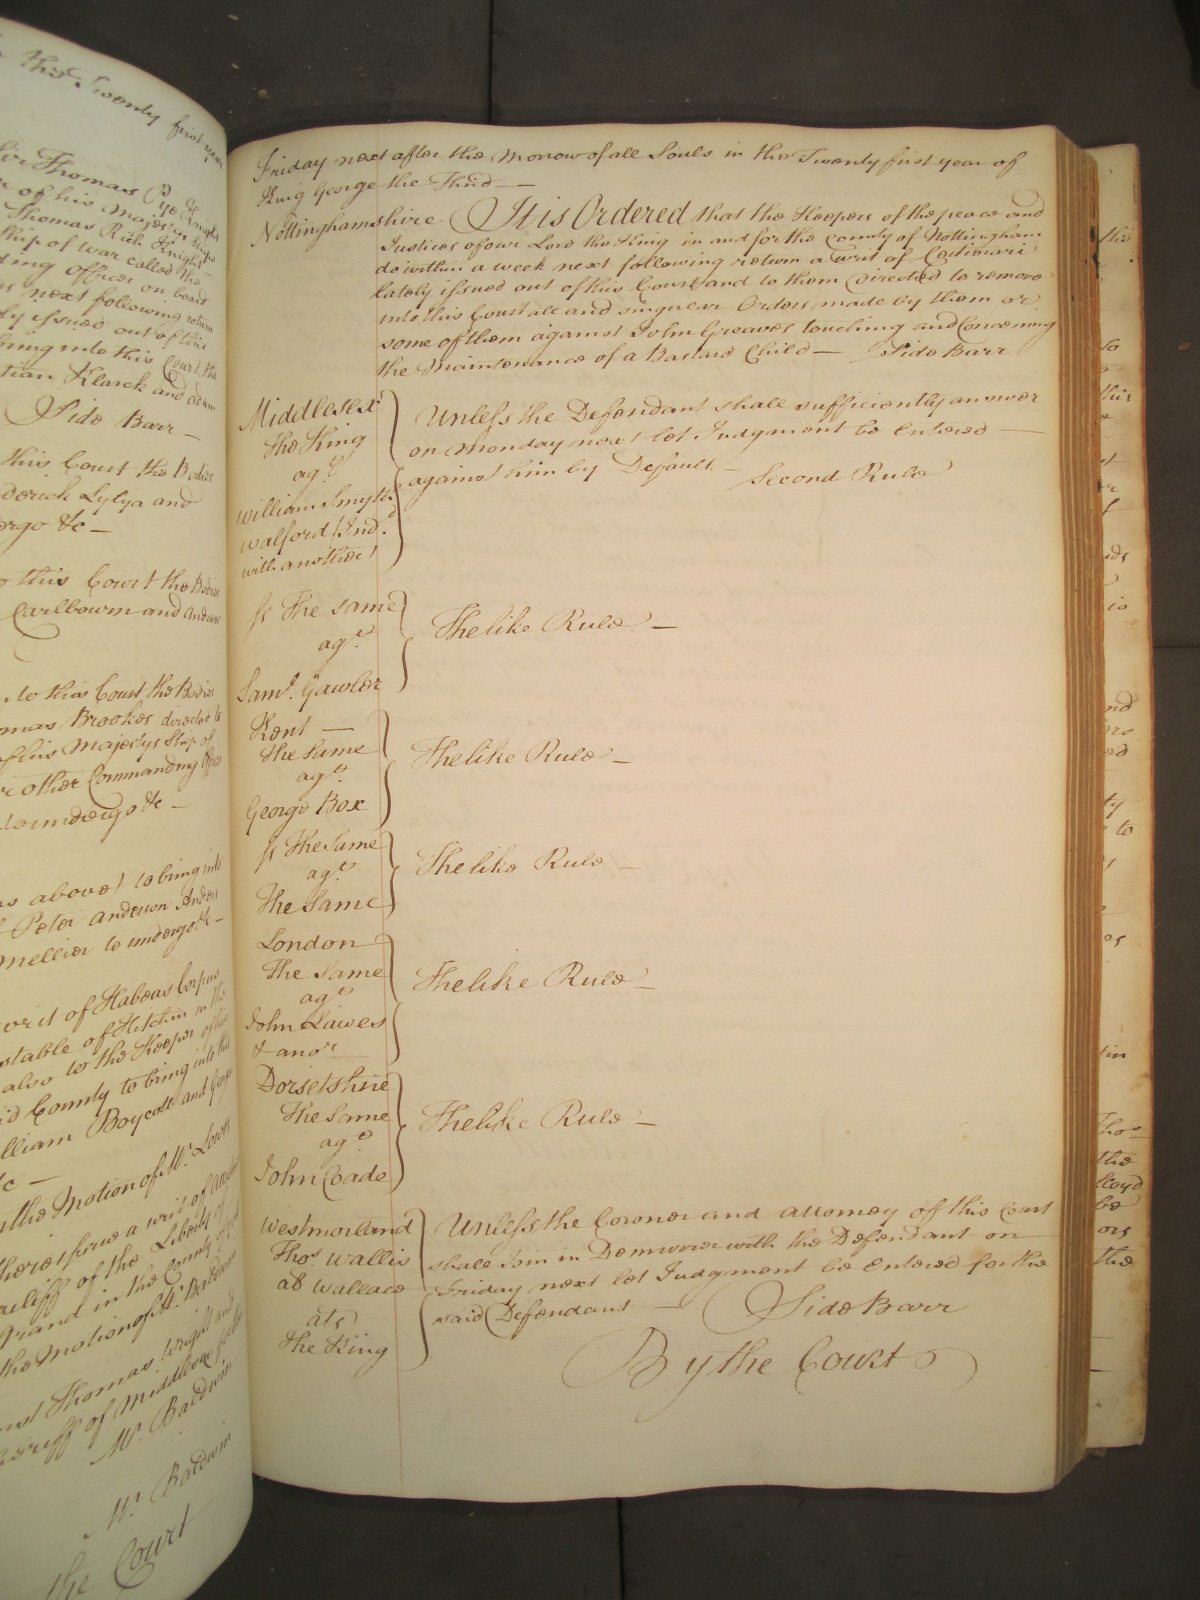 this Twenty first year
Sir Thomas Pye Knight
of his Majesty's Ships
Thomas Rich Knight
Ship of war called the
ding officer on board
next following return
ly issued out of this
bring into this Court the
tian Klarck and adam
Side Barr
this Court the Bodies
derick Lylya and
ergo &c
to this Court the Bodies
Carlbowm and Andrew
to this Court the Bodies
mas Brookes directed to
of his Majestys Ship of
r other Commanding Officer
to undergo &c
as above) to bring into
Peter Anderson Anders
mellier to undergo &c
writ of Habeas Corpus
stable of Hitchin in the
also to the Keeper of his
id County to bring into this
lliam Boycott and George
&c
the Motion of Mr. Lowes
there issue a writ of
Bailiff of the Liberty of
grand in the County of
the Motion of Mr. Baldwin
Thomas Wright and
heriff of Middlesex
Mr. Baldwin
Mr. Baldwin
the Court
Friday next after the Morrow of all Souls in the Twenty first year of
King George the Third
Nottinghamshire It is Ordered that the Keepers of the peace and
Justices of our Lord the King in and for the County of Nottingham
do within a week next following return a Writ of Certiorari
lately issued out of this Court and to them Directed to remove
into this Court all and singular Orders made by them or
some of them against John Greaves touching and Concerning
the Maintenance of a Bastard Child — Side Barr
Middlesex
The King
agt.
William Smyth
Walford (Ind.d
with another)
Unless the Defendant shall sufficiently answer
on Monday next let Judgment be Entered —
against him by Default — Second Rule
Js The same
agt.
Saml. Gawler
The like Rule —
Kent —
The Same
agt.
George Box
The like Rule —
Js The Same
agt.
The Same
The like Rule —
London
The Same
agt.
John Lawes
& anor
The like Rule —
Dorsetshire
The Same
agt.
John Coade
The like Rule —
Westmorland
Thos. Wallis
als Wallace
ats
The King
Unless the Coroner and Attorney of this Court
shall Join in Demurrer with the Defendant on
Friday next let Judgment be Entered for the
said Defendant — Side Barr
By the Court